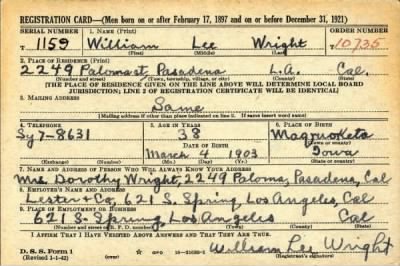 REGISTRATION CARD—(Men born on or after February 17, 1897 and on or before December 31, 1921)
SERIAL NUMBER 1. NAME (Print) ORDER NUMBER
T 1159 William Lee Wright 10735
(First) (Middle) (Last)
2. PLACE OF RESIDENCE (Print)
2249 Paloma st. Pasadena L.A. Cal.
(Number and street) (Town, township, village, or city) (County) (State)
[THE PLACE OF RESIDENCE GIVEN ON THE LINE ABOVE WILL DETERMINE LOCAL BOARD
JURISDICTION; LINE 2 OF REGISTRATION CERTIFICATE WILL BE IDENTICAL]
3. MAILING ADDRESS
Same
[Mailing address if other than place indicated on line 2. If same insert word same]
4. TELEPHONE 5. AGE IN YEARS 6. PLACE OF BIRTH
Sy 7-8631 38 Maquoketa
DATE OF BIRTH (Town or county)
March 4 1903 Iowa
(Exchange) (Number) (Mo.) (Day) (Yr.) (State or country)
7. NAME AND ADDRESS OF PERSON WHO WILL ALWAYS KNOW YOUR ADDRESS
Mrs Dorothy Wright, 2249 Paloma, Pasadena, Cal
8. EMPLOYER'S NAME AND ADDRESS
Lester & Co, 621 S. Spring, Los Angeles, Cal
9. PLACE OF EMPLOYMENT OR BUSINESS
621 S. Spring Los Angeles Cal
(Number and street or R. F. D. number) (Town) (County) (State)
I AFFIRM THAT I HAVE VERIFIED ABOVE ANSWERS AND THAT THEY ARE TRUE.
D. S. S. Form 1
(Revised 1-1-42) GPO 16—21630-2 William Lee Wright
(Registrant's signature)